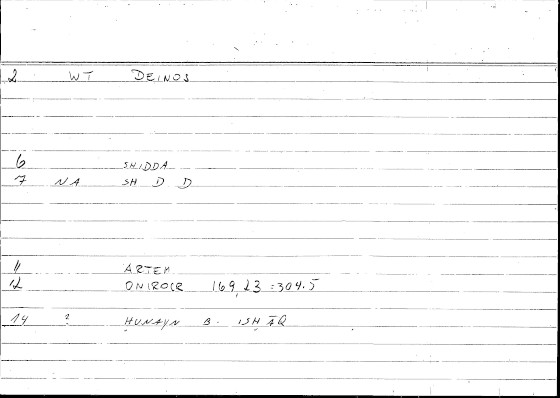 2 WT DEINOS
6 SHIDDA
7 NA SH D D
11 ARTEM
12 ONIROCR 169,23 = 304.5
14 ? ḤUNAYN B. ISḤĀQ